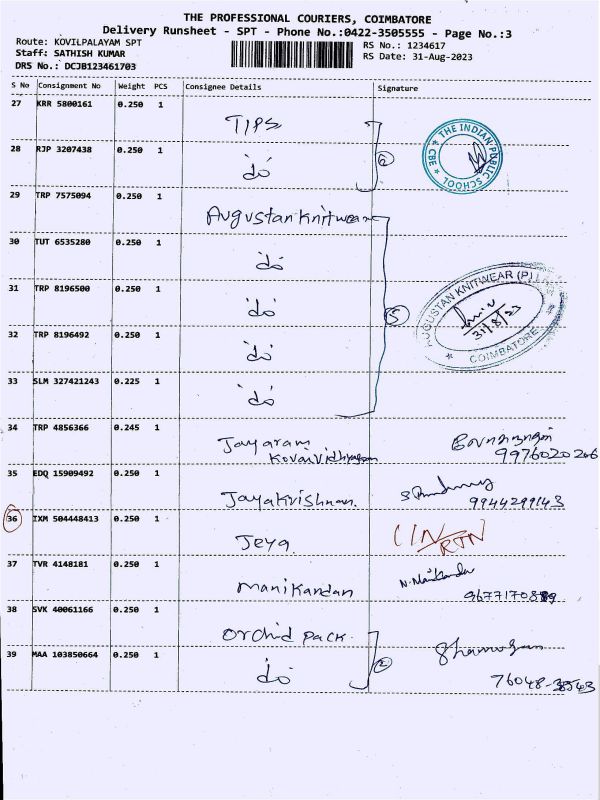 THE PROFESSIONAL COURIERS, COIMBATORE
Delivery Runsheet - SPT - Phone No.:0422-3505555 - Page No.:3
Route: KOVILPALAYAM SPT
Staff: SATHISH KUMAR
DRS No.: DCJB123461703
RS No.: 1234617
RS Date: 31-Aug-2023
S No Consignment No Weight PCS Consignee Details Signature
27 KRR 5800161 0.250 1 TIPS
28 RJP 3207438 0.250 1 do
2
THE INDIAN PUBLIC SCHOOL * CBE *
29 TRP 7575094 0.250 1 Augustan Knitwear
30 TUT 6535280 0.250 1 do
31 TRP 8196500 0.250 1 do
32 TRP 8196492 0.250 1 do
33 SLM 327421243 0.225 1 do
5
AUGUSTAN KNITWEAR (P)
31/8/23
* COIMBATORE *
34 TRP 4856366 0.245 1 Jayaram
9976020206
35 EDQ 15909492 0.250 1 Jayakrishnan. 9944299143
36 IXM 504448413 0.250 1 Jeya. IN/RTN
37 TVR 4148181 0.250 1 Manikandan
38 SVK 40061166 0.250 1 Orchid pack.
39 MAA 103850664 0.250 1 do 2